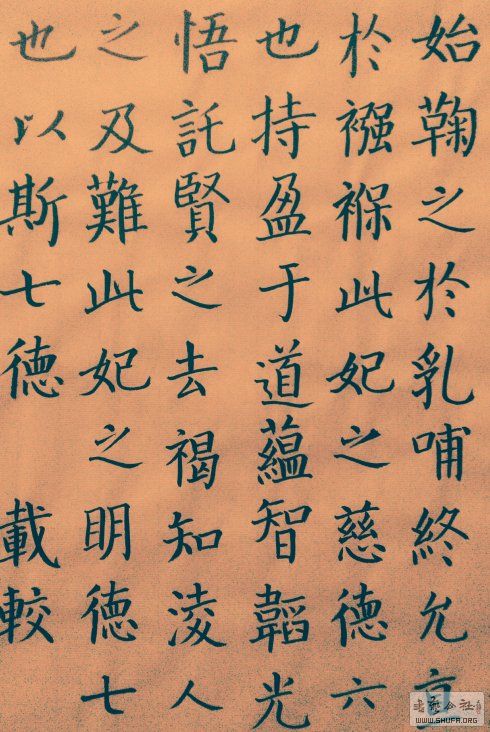 始鞠之於乳哺終允
於襁褓此妃之慈德六
也持盈于道蘊智韜光
悟託賢之去褐知淩人
之及難此妃之明德七
也以斯七德 載較
書法公社
WWW.SHUFA.ORG